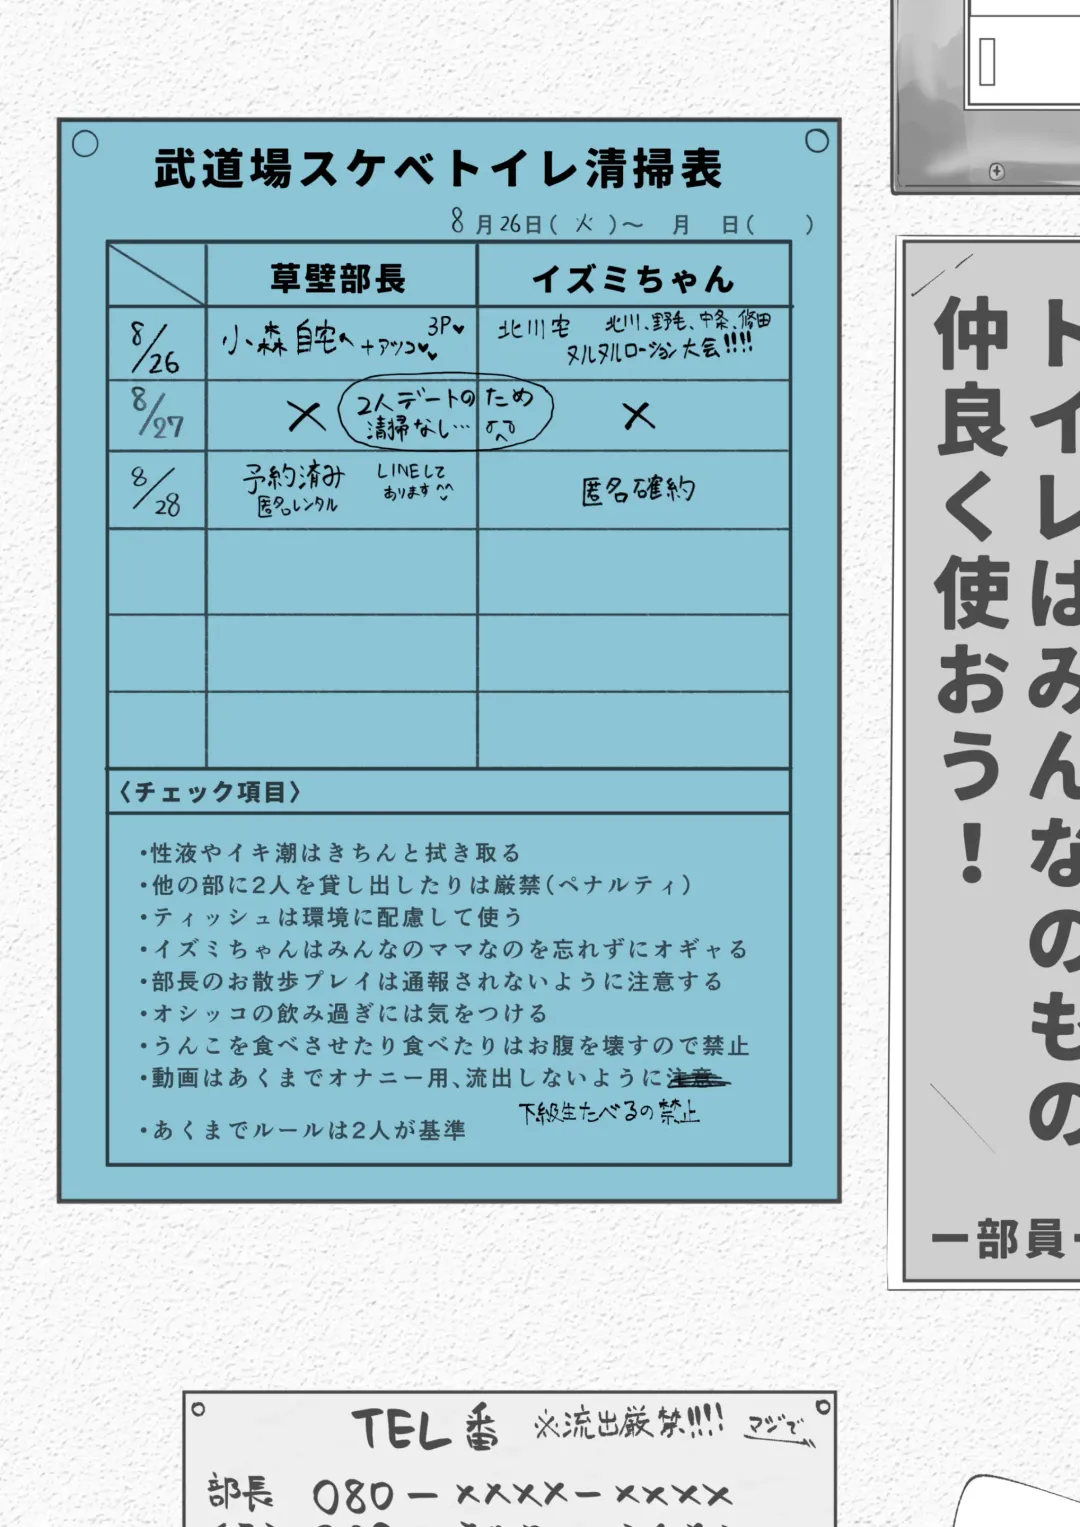 武道場スケベトイレ清掃表
8月26日(火)～ 月 日( )
草壁部長 イズミちゃん
8/26 小森自宅へ +アツコ♥♥ 3P♥ 北川宅 北川、野毛、中条、修田
ヌルヌルローション大会!!!!
8/27 × 2人デートのため ×
清掃なし…
8/28 予約済み LINEして 匿名確約
匿名レンタル あります^^
〈チェック項目〉
・性液やイキ潮はきちんと拭き取る
・他の部に2人を貸し出したりは厳禁(ペナルティ)
・ティッシュは環境に配慮して使う
・イズミちゃんはみんなのママなのを忘れずにオギャる
・部長のお散歩プレイは通報されないように注意する
・オシッコの飲み過ぎには気をつける
・うんこを食べさせたり食べたりはお腹を壊すので禁止
・動画はあくまでオナニー用、流出しないように注意
下級生たべるの禁止
・あくまでルールは2人が基準
トイレはみんなのもの
仲良く使おう！
ー部員ー
TEL番 ※流出厳禁!!!! マジで
部長 080-××××-××××